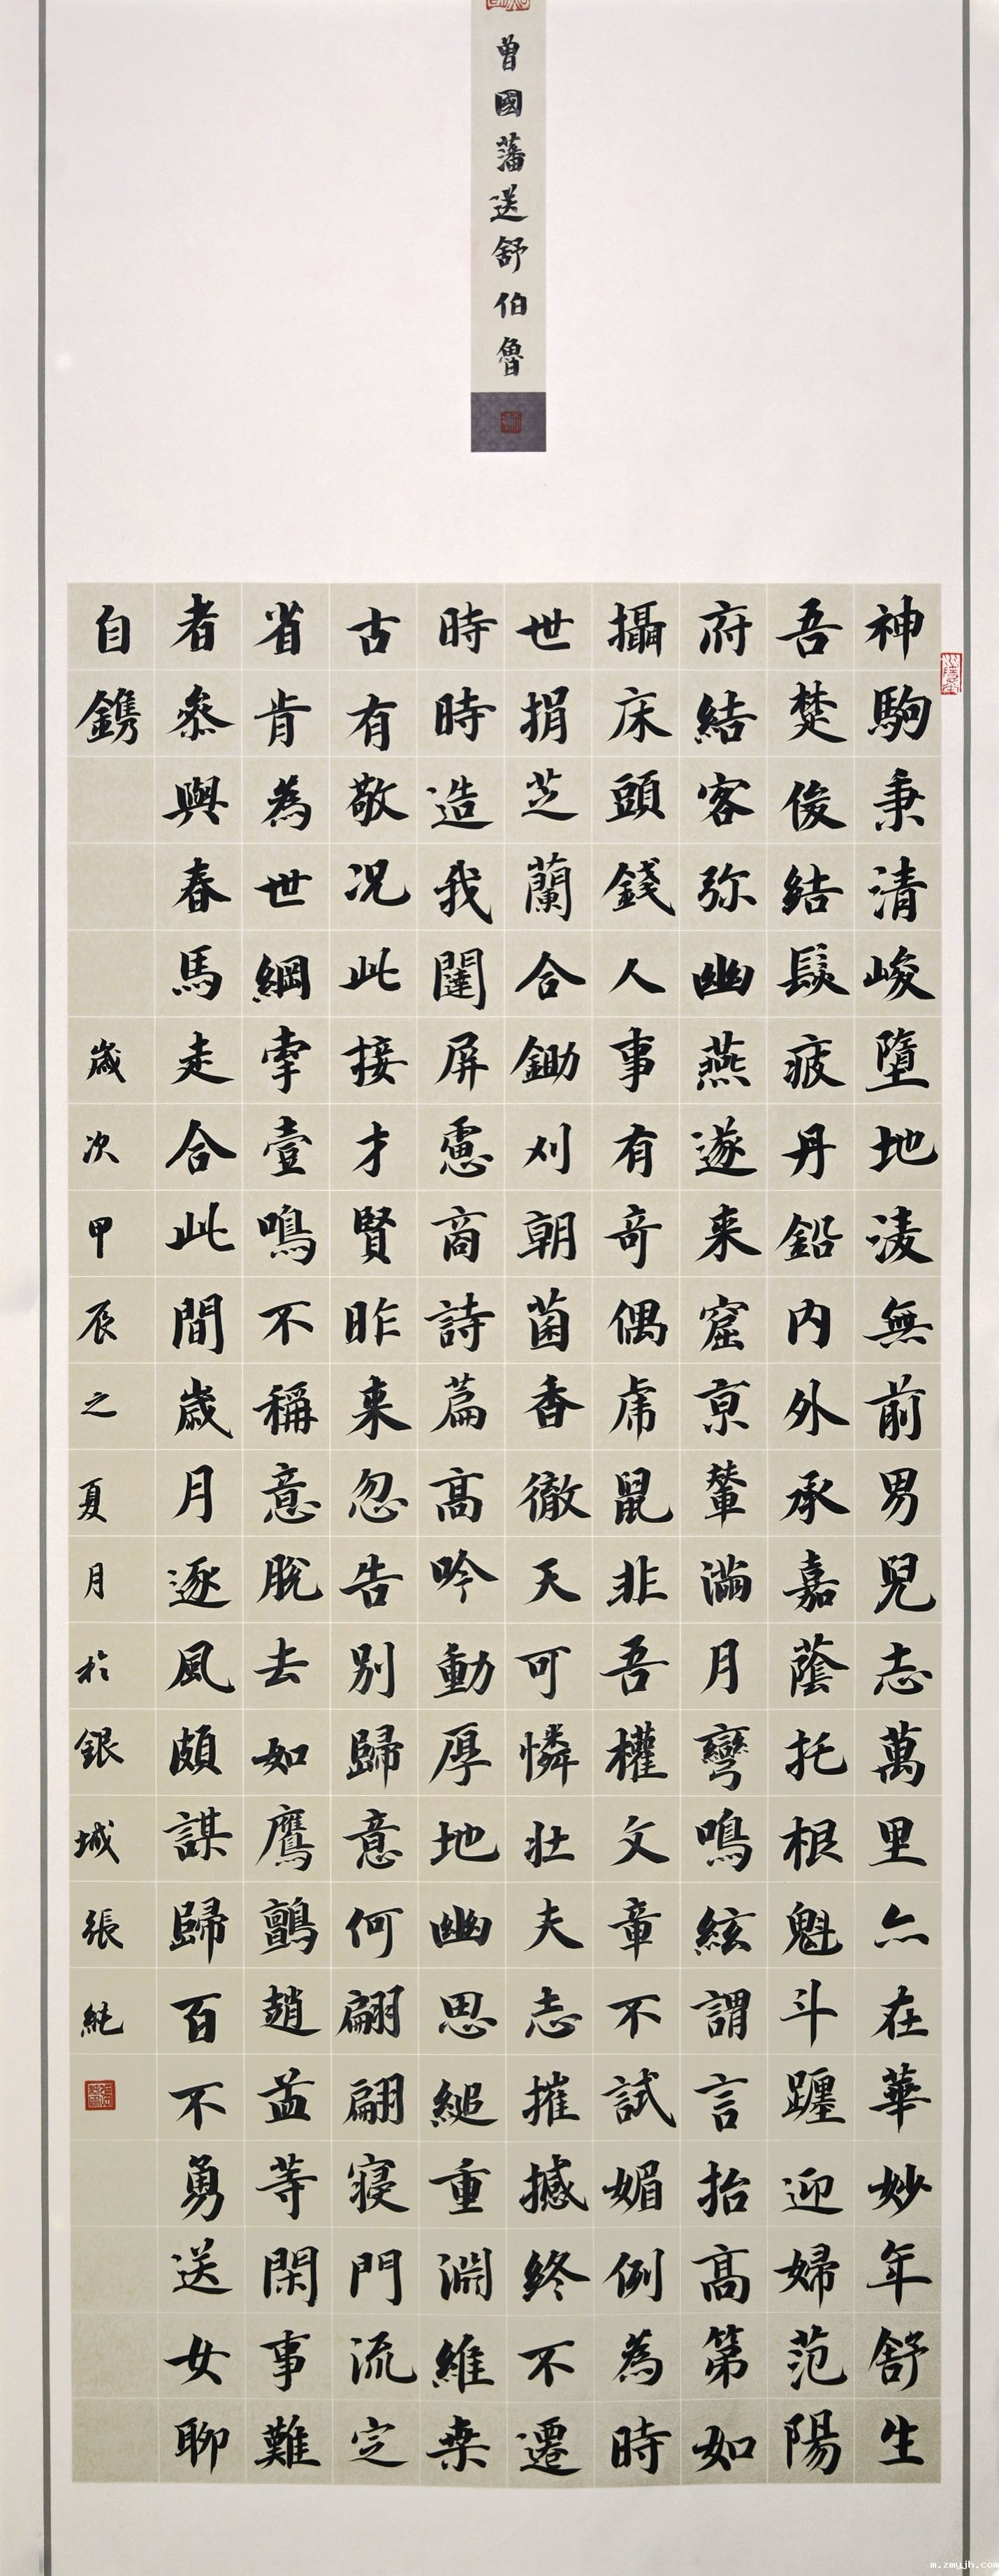 曾國藩送舒伯魯
神駒秉清峻墮地淩無前男兒志萬里亦在華妙年舒生
吾楚俊結髮疲丹鉛內外承嘉蔭托根魁斗躔迎婦范陽
府結客弥幽燕遂来窟京輦滿月彎鳴絃謂言拾高第如
攝床頭錢人事有奇偶虎鼠非吾權文章不試媚例為時
世捐芝蘭合鋤刈朝菌香徹天可憐壯夫志摧撼終不遷
時時造我闥屏慮商詩篇高吟動厚地幽思縋重淵維桒
古有敬況此接才賢昨来忽告別歸意何翩翩寢門流定
省肯為世綱牽壹鳴不稱意脫去如鷹鸇趙孟等閑事難
者叅與春馬走合此間歲月逐風頗謀歸百不勇送女聊
自鐫
歲次甲辰之夏月於銀城張純
m.zmyjh.com